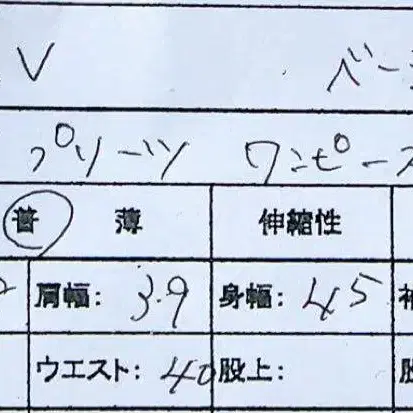 V ベー
プリーツ ワンピース
普 薄 伸縮性
肩幅: 3.9 身幅: 45
ウエスト: 40 股上: